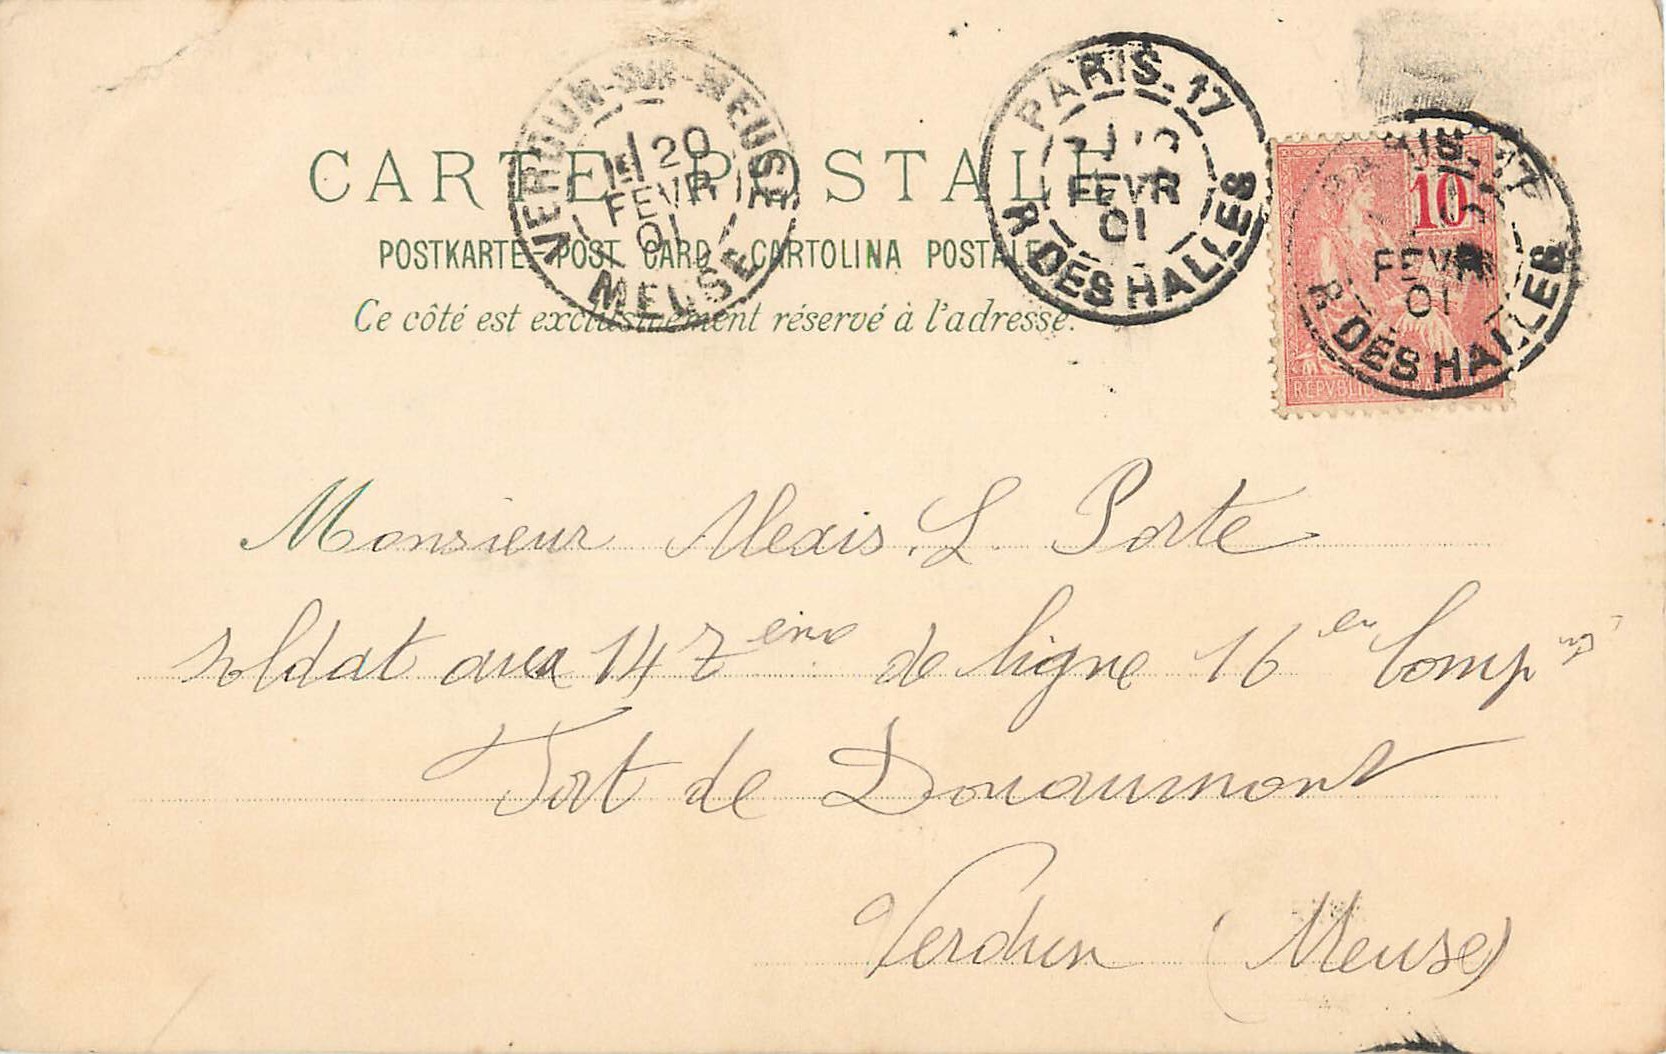 CARTE POSTALE
POSTKARTE POST CARD CARTOLINA POSTALE
Ce côté est exclusivement réservé à l'adresse.
VERDUN-SUR-MEUSE
20
FEVR
01
MEUSE
PARIS. 17
FEVR
01
R DES HALLES
10
FEVR
01
R DES HALLES
Monsieur Alexis. L. Porte
Soldat au 147 ème de ligne 16 en Comp
Fort de Douaumont
Verdun (Meuse)